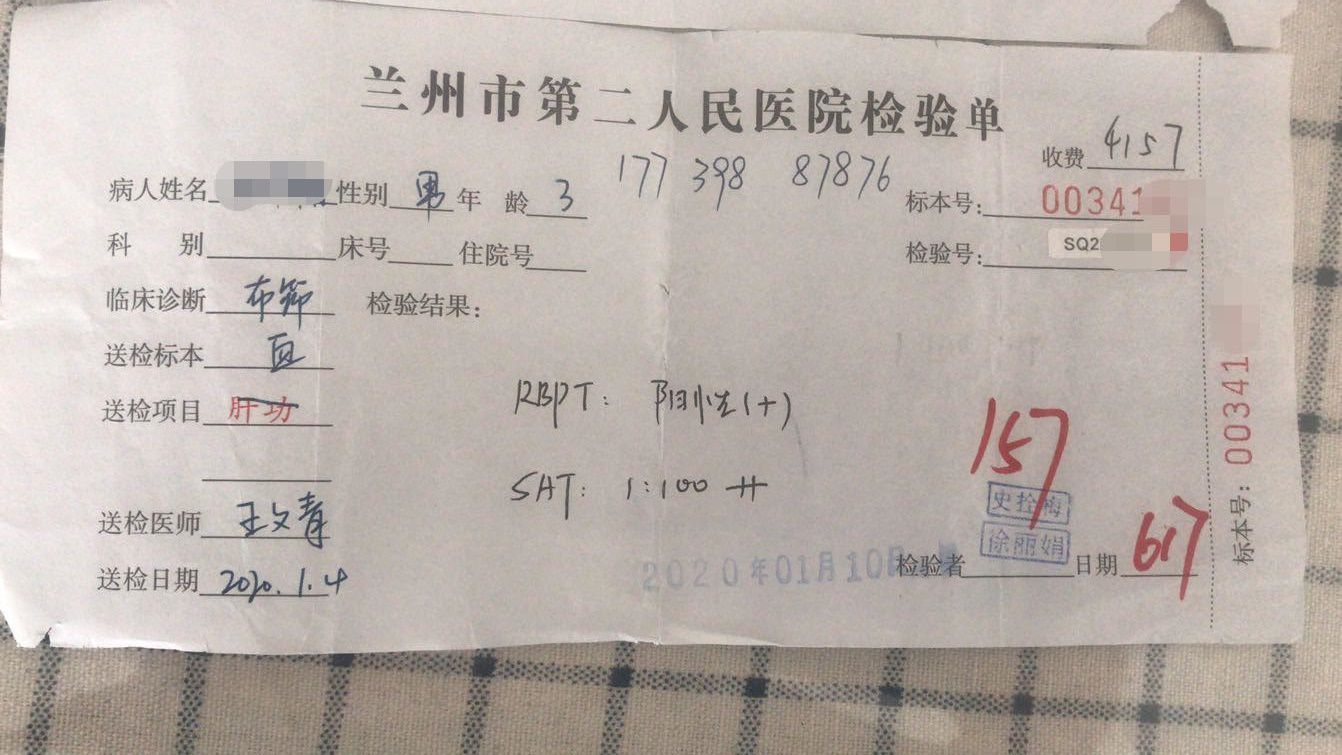 兰州市第二人民医院检验单
收费 4157
177 398 87876
病人姓名 性别 男 年 龄 3
标本号: 00341
科 别 床号 住院号
检验号: SQ2
临床诊断 布筛 检验结果:
送检标本 血
送检项目 肝功
RBPT: 阳性(+)
157
SAT: 1:100 ++
史拴梅
徐丽娟
送检医师 王文青
送检日期 2020.1.4
2020年01月10日
检验者 日期 617
标本号: 00341